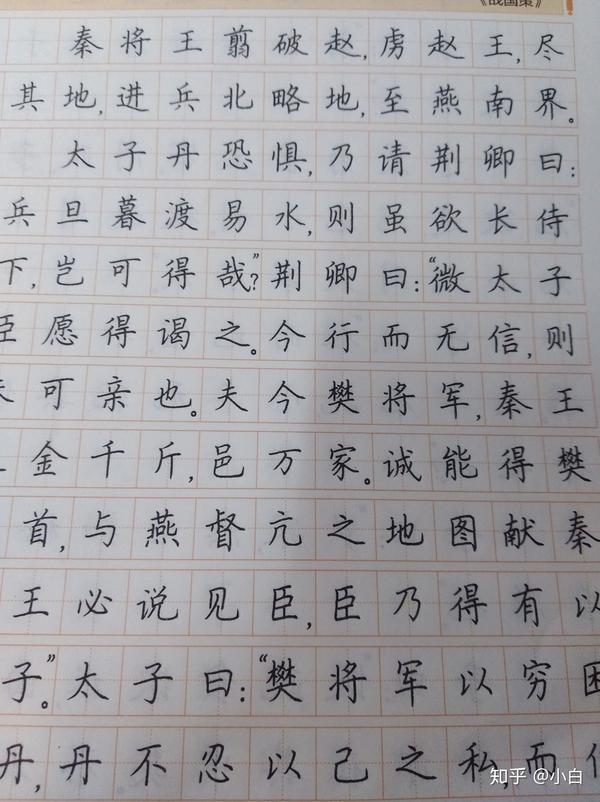 《战国策》
秦将王翦破赵,虏赵王,尽
其地,进兵北略地,至燕南界。
太子丹恐惧,乃请荆卿曰:
兵旦暮渡易水,则虽欲长侍
下,岂可得哉?”荆卿曰:“微太子
臣愿得谒之。今行而无信,则
可亲也。夫今樊将军,秦王
金千斤,邑万家。诚能得樊
首,与燕督亢之地图献秦
王必说见臣,臣乃得有以
子。”太子曰:“樊将军以穷困
丹,丹不忍以己之私,而
知乎 @小白